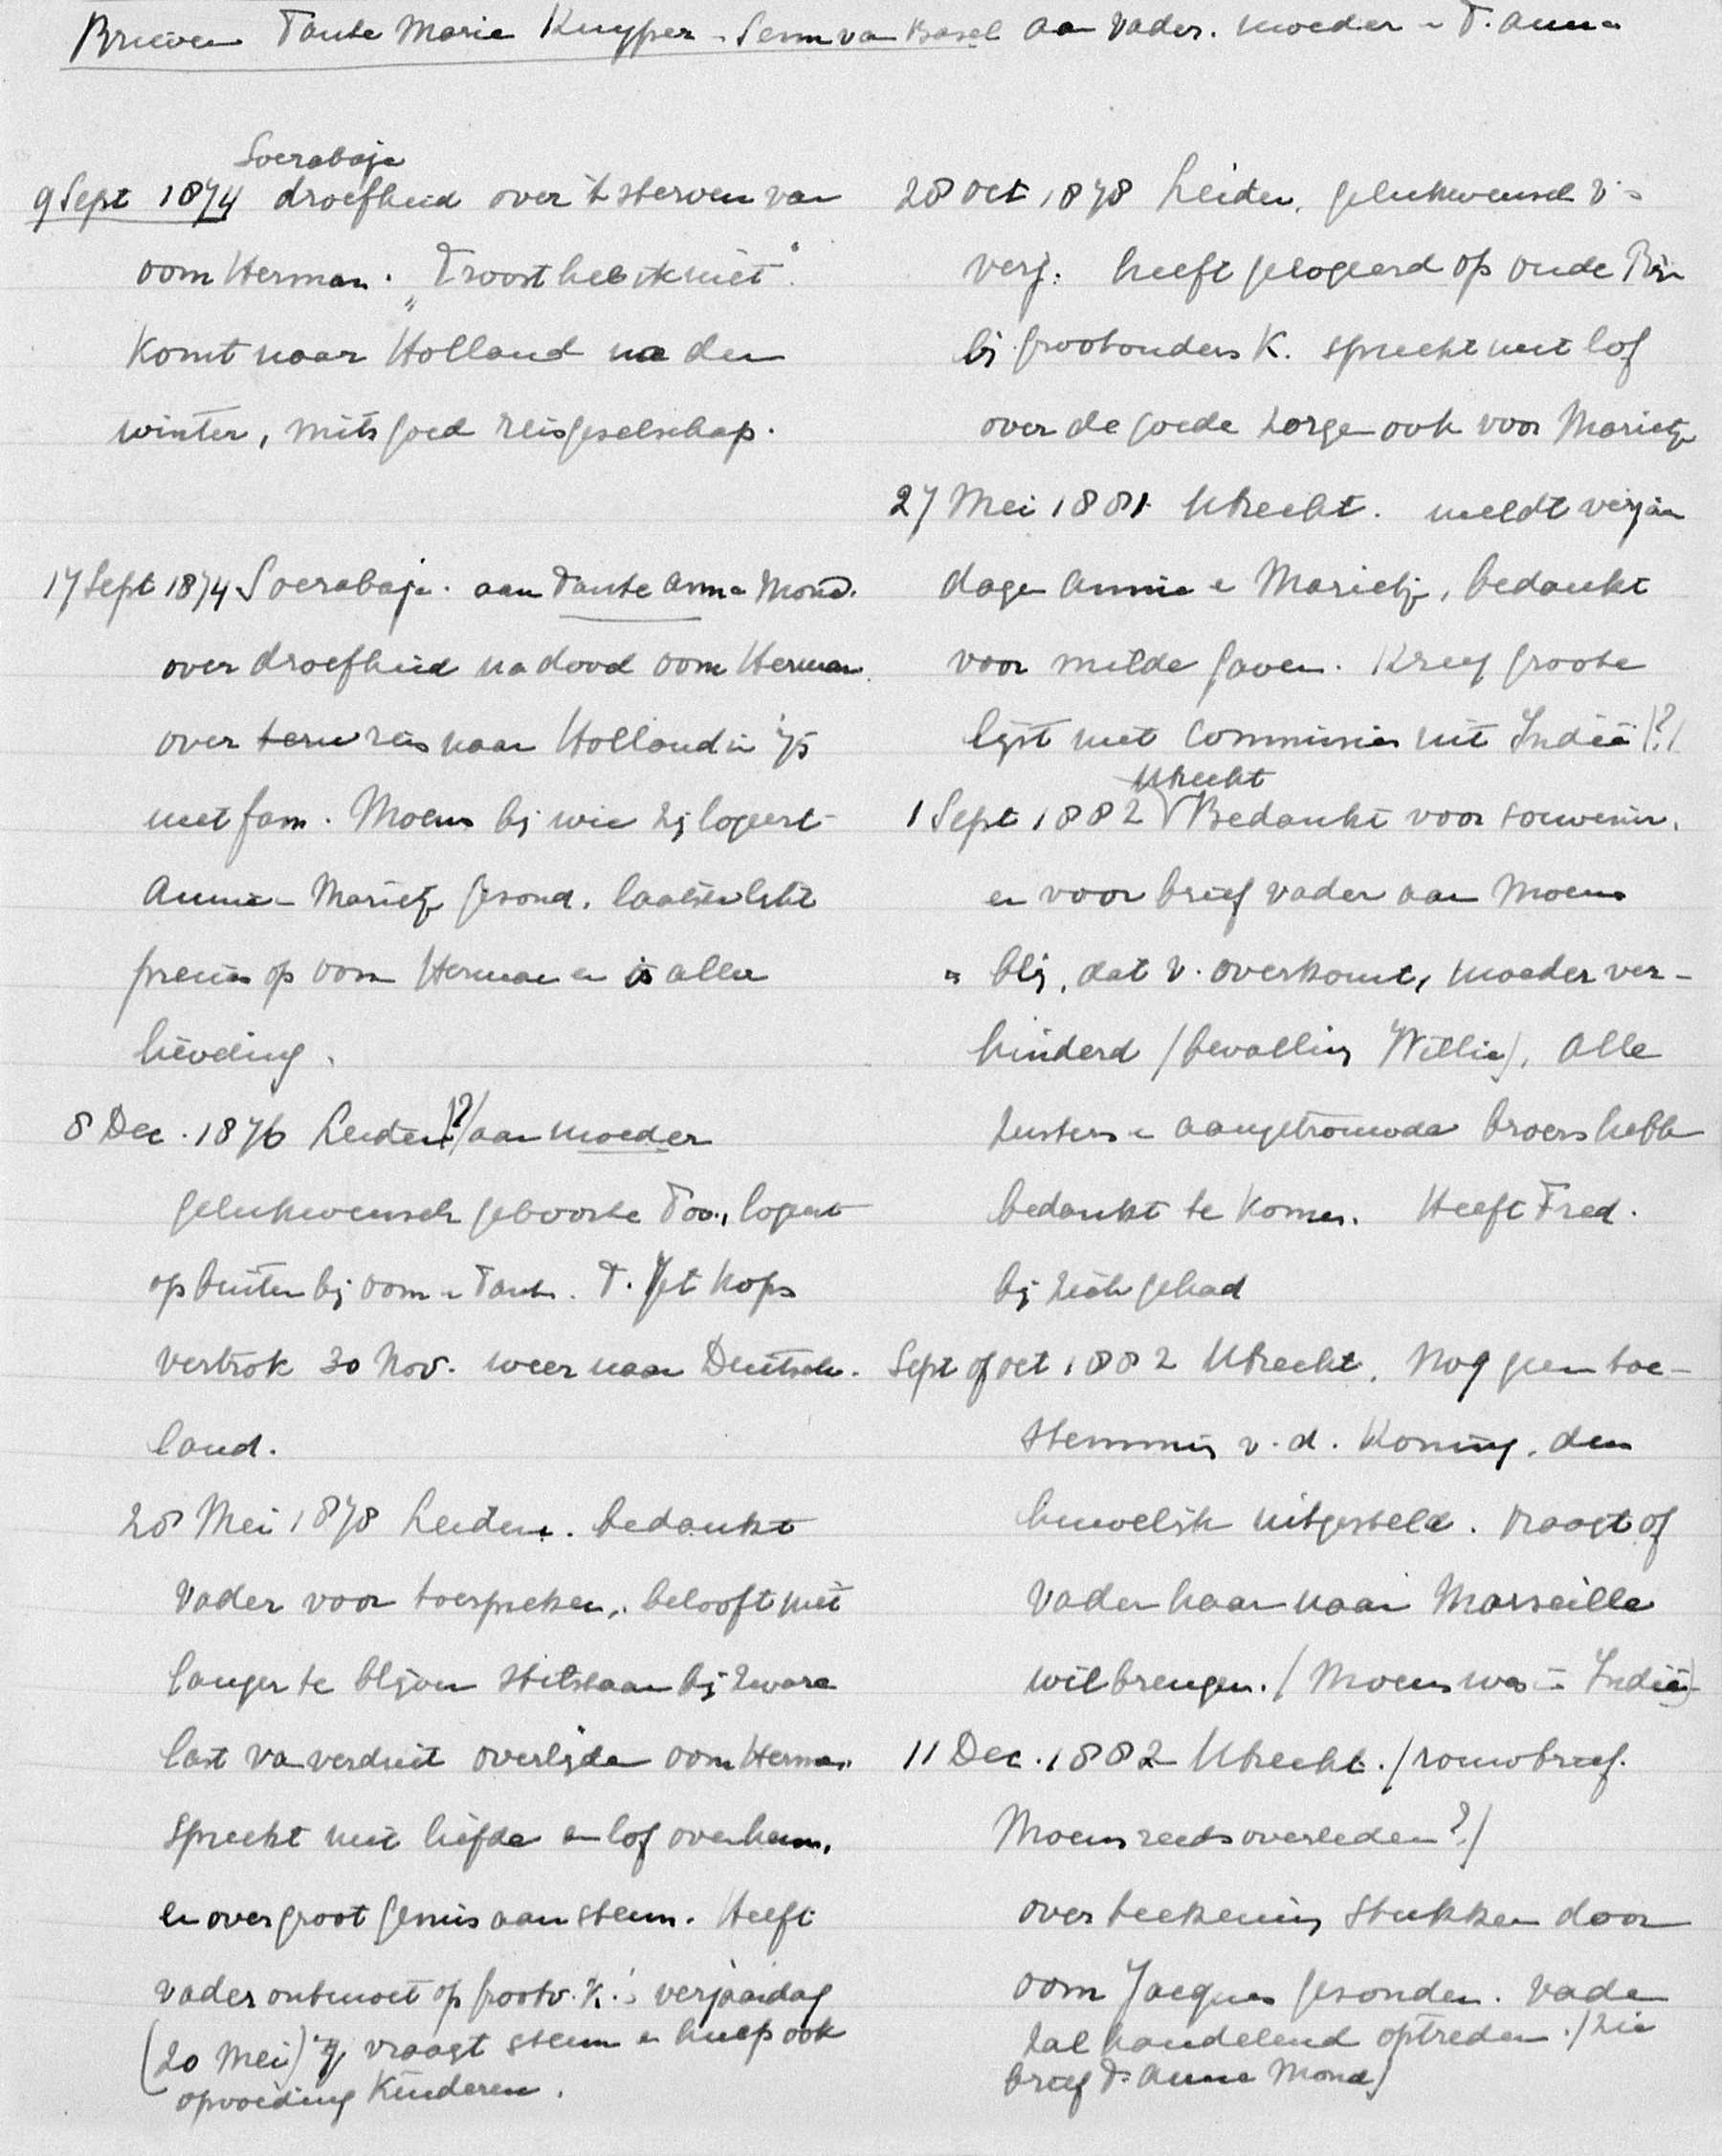 Brieven Tante Marie Kuyper - Senn van Basel aan Vader. moeder - T. Anna
Soerabaja
9 Sept 1874 droefheid over 't sterven van
oom Herman. "Troost heb ik niet".
Komt naar Holland na den
winter, mits goed reisgeselschap.
17 Sept 1874 Soerabaja. aan Tante Anna Mond.
over droefheid na dood oom Herman.
over reis naar Holland in '75
met fam. Moens bij wie zij logeert
Annie - Marietje gezond. laatste lijkt
precies op oom Herman en is aller
lieveling.
8 Dec. 1876 Leiden (?) aan moeder
gelukwensch geboorte Too., logeert
op buiten bij oom - Tante. T. Jet Kops
vertrok 30 Nov. weer naar Duitsch-
land.
28 Mei 1878 Leiden. bedankt
Vader voor toespreken, belooft niet
langer te blijven stilstaan bij zware
last van verdriet overlijden oom Herman.
Spreekt met liefde en lof over hem,
en over groot gemis aan steun. Heeft
vader ontmoet op grootv. K.'s verjaardag
(20 Mei) Zij vraagt steun en hulp ook
opvoeding Kinderen.
28 Oct 1878 Leiden. gelukwensch V's
verj. heeft gelogeerd op oude Rijn
bij grootouders K. spreekt met lof
over de goede zorgen ook voor Marietje
27 Mei 1881 Utrecht. meldt verjaar
dagen Annie en Marietje, bedankt
voor milde gaven. Kreeg groote
lijst met commissies uit Indië (?)
Utrecht
1 Sept 1882 Bedankt voor souvenir.
en voor brief vader aan Moens
" blij, dat V. overkomt, moeder ver-
hinderd (bevalling Willie). Alle
zusters en aangetrouwde broers hebben
bedankt te Komen. Heeft Fred.
bij zich gehad
Sept of Oct 1882 Utrecht. Nog geen toe-
stemming v.d. Koning, dus
huwelijk uitgesteld. vraagt of
Vader haar naar Marseille
wil brengen. (Moens was in Indië)
11 Dec. 1882 Utrecht. (rouwbrief.
Moens reeds overleden?)
over teekening stukken door
oom Jacques gezonden. Vader
zal handelend optreden. (zie
brief T. Anna Mond)